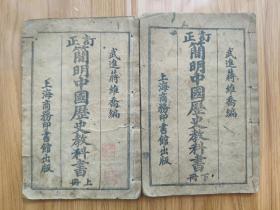 武進蔣維喬編
訂正
簡明中國歷史教科書
上冊
上海商務印書館出版
武進蔣維喬編
訂正
簡明中國歷史教科書
下冊
上海商務印書館出版